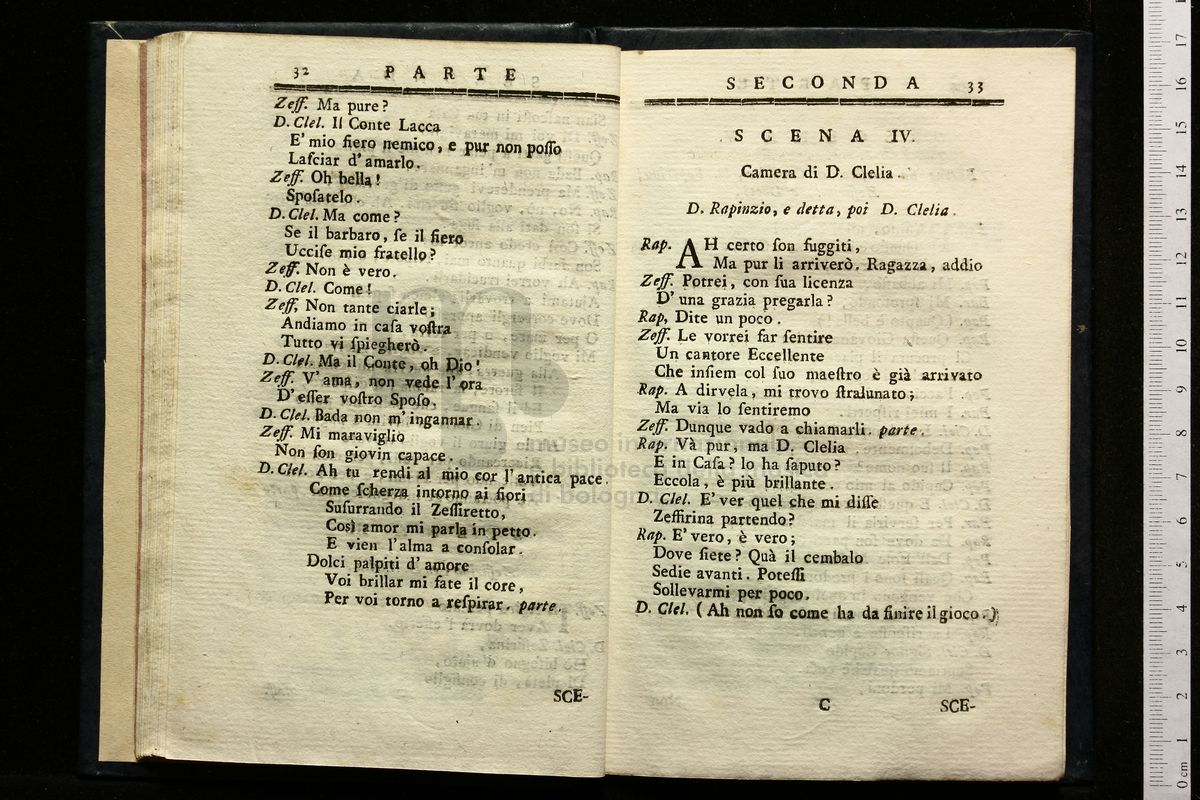 32 PARTE
Zeff. Ma pure?
D. Clel. Il Conte Lacca
E' mio fiero nemico, e pur non poſſo
Laſciar d'amarlo.
Zeff. Oh bella!
Spoſatelo.
D. Clel. Ma come?
Se il barbaro, ſe il fiero
Ucciſe mio fratello?
Zeff. Non è vero.
D. Clel. Come!
Zeff, Non tante ciarle;
Andiamo in caſa voſtra
Tutto vi ſpiegherò.
D. Clel. Ma il Conte, oh Dio!
Zeff. V'ama, non vede l'ora
D'eſſer voſtro Spoſo.
D. Clel. Bada non m'ingannar.
Zeff. Mi maraviglio
Non ſon giovin capace.
D. Clel. Ah tu rendi al mio cor l'antica pace.
Come ſcherza intorno ai fiori
Suſurrando il Zeffiretto,
Così amor mi parla in petto.
E vien l'alma a conſolar.
Dolci palpiti d'amore
Voi brillar mi fate il core,
Per voi torno a reſpirar. parte.
SCE-
SECONDA 33
SCENA IV.
Camera di D. Clelia.
D. Rapinzio, e detta, poi D. Clelia.
Rap. AH certo ſon fuggiti,
Ma pur li arriverò. Ragazza, addio
Zeff. Potrei, con ſua licenza
D'una grazia pregarla?
Rap, Dite un poco.
Zeff. Le vorrei far ſentire
Un cantore Eccellente
Che inſiem col ſuo maeſtro è già arrivato
Rap. A dirvela, mi trovo ſtralunato;
Ma via lo ſentiremo
Zeff. Dunque vado a chiamarli. parte.
Rap. Và pur, ma D. Clelia
E in Caſa? lo ha ſaputo?
Eccola, è più brillante.
D. Clel. E' ver quel che mi diſſe
Zeffirina partendo?
Rap. E' vero, è vero;
Dove ſiete? Quà il cembalo
Sedie avanti. Poteſſi
Sollevarmi per poco.
D. Clel. (Ah non ſo come ha da finire il gioco.)
C SCE-
museo internazionale
biblioteca della musica
di bologna